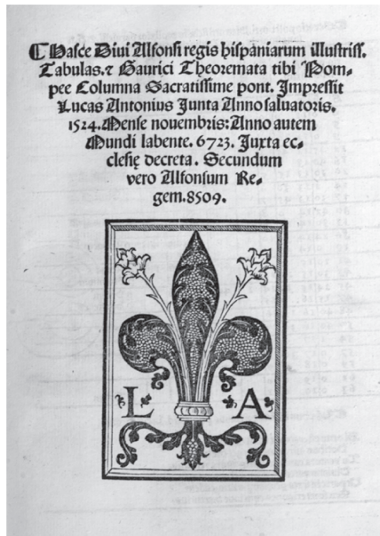 ☾Hasce Diui Alfonsi regis hispaniarum illustriss.
Tabulas. ⁊ Gaurici Theoremata tibi Pom⸗
pee Columna Sacratissime pont. Impressit
Lucas Antonius Junta Anno saluatoris.
1524. Mense nouembris: Anno autem
Mundi labente. 6723. Juxta ec⸗
clesię decreta. Secundum
vero Alfonsum Re⸗
gem. 8509.
L A